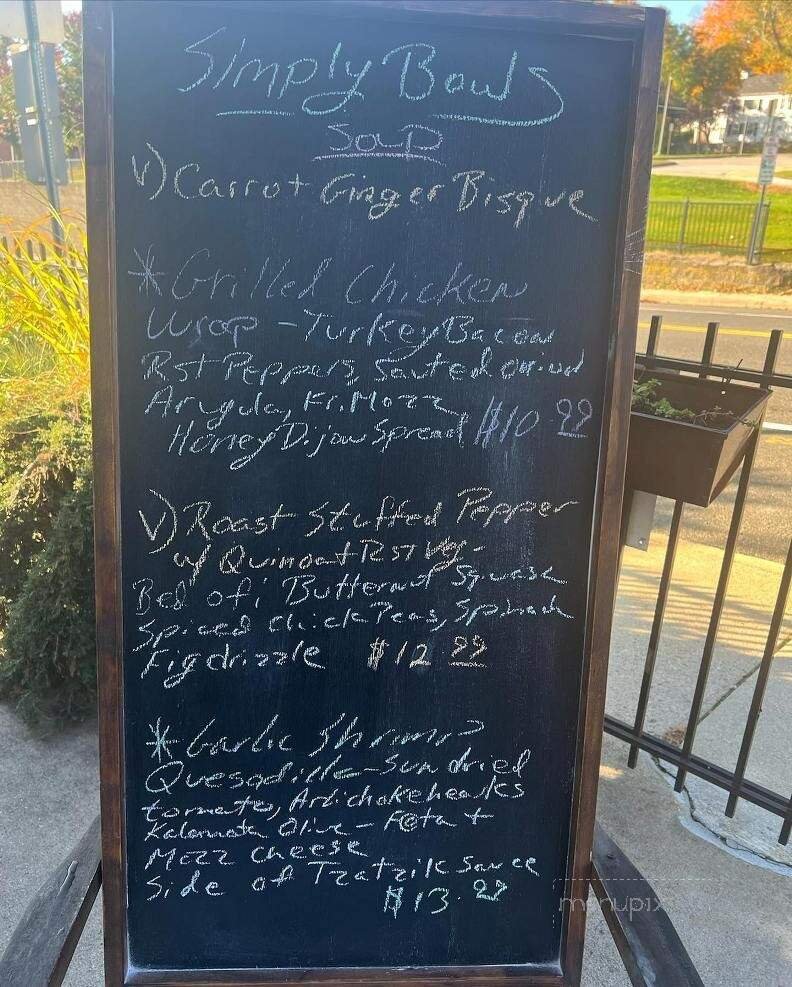 Simply Bowls
Soup
V) Carrot Ginger Bisque
* Grilled Chicken
Wrap - Turkey Bacon
Rst Peppers, sauted onion
Arugula, Fr. Mozz
Honey Dijon Spread $10.99
V) Roast Stuffed Pepper
w/ Quinoa + Rst Veg-
Bed of: Butternut Squash
Spiced chick Peas, Spinach
Fig drizzle $12.99
* Garlic Shrimp
Quesadilla - Sun dried
tomato, Artichoke hearts
Kalamata Olive - Feta +
Mozz cheese
Side of Tzatziki Sauce
$13.99
menupix